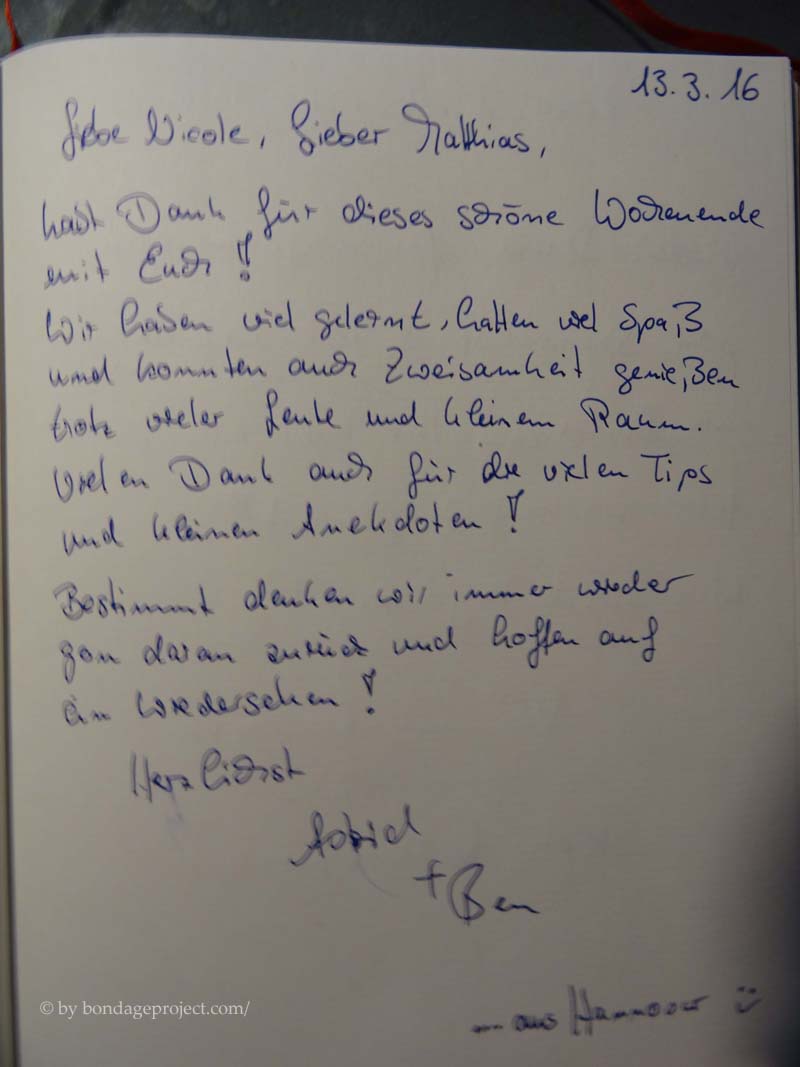 13.3.16
Liebe Nicole, Lieber Matthias,
habt Dank für dieses schöne Wochenende
mit Euch!
Wir haben viel gelernt, hatten viel Spaß
und konnten auch Zweisamkeit genießen
trotz vieler Leute und kleinem Raum.
Vielen Dank auch für die vielen Tips
und kleinen Anekdoten!
Bestimmt denken wir immer wieder
gern daran zurück und hoffen auf
ein Wiedersehen!
Herzlichst
Astrid
+ Ben
... aus Hannover :)
© by bondageproject.com/